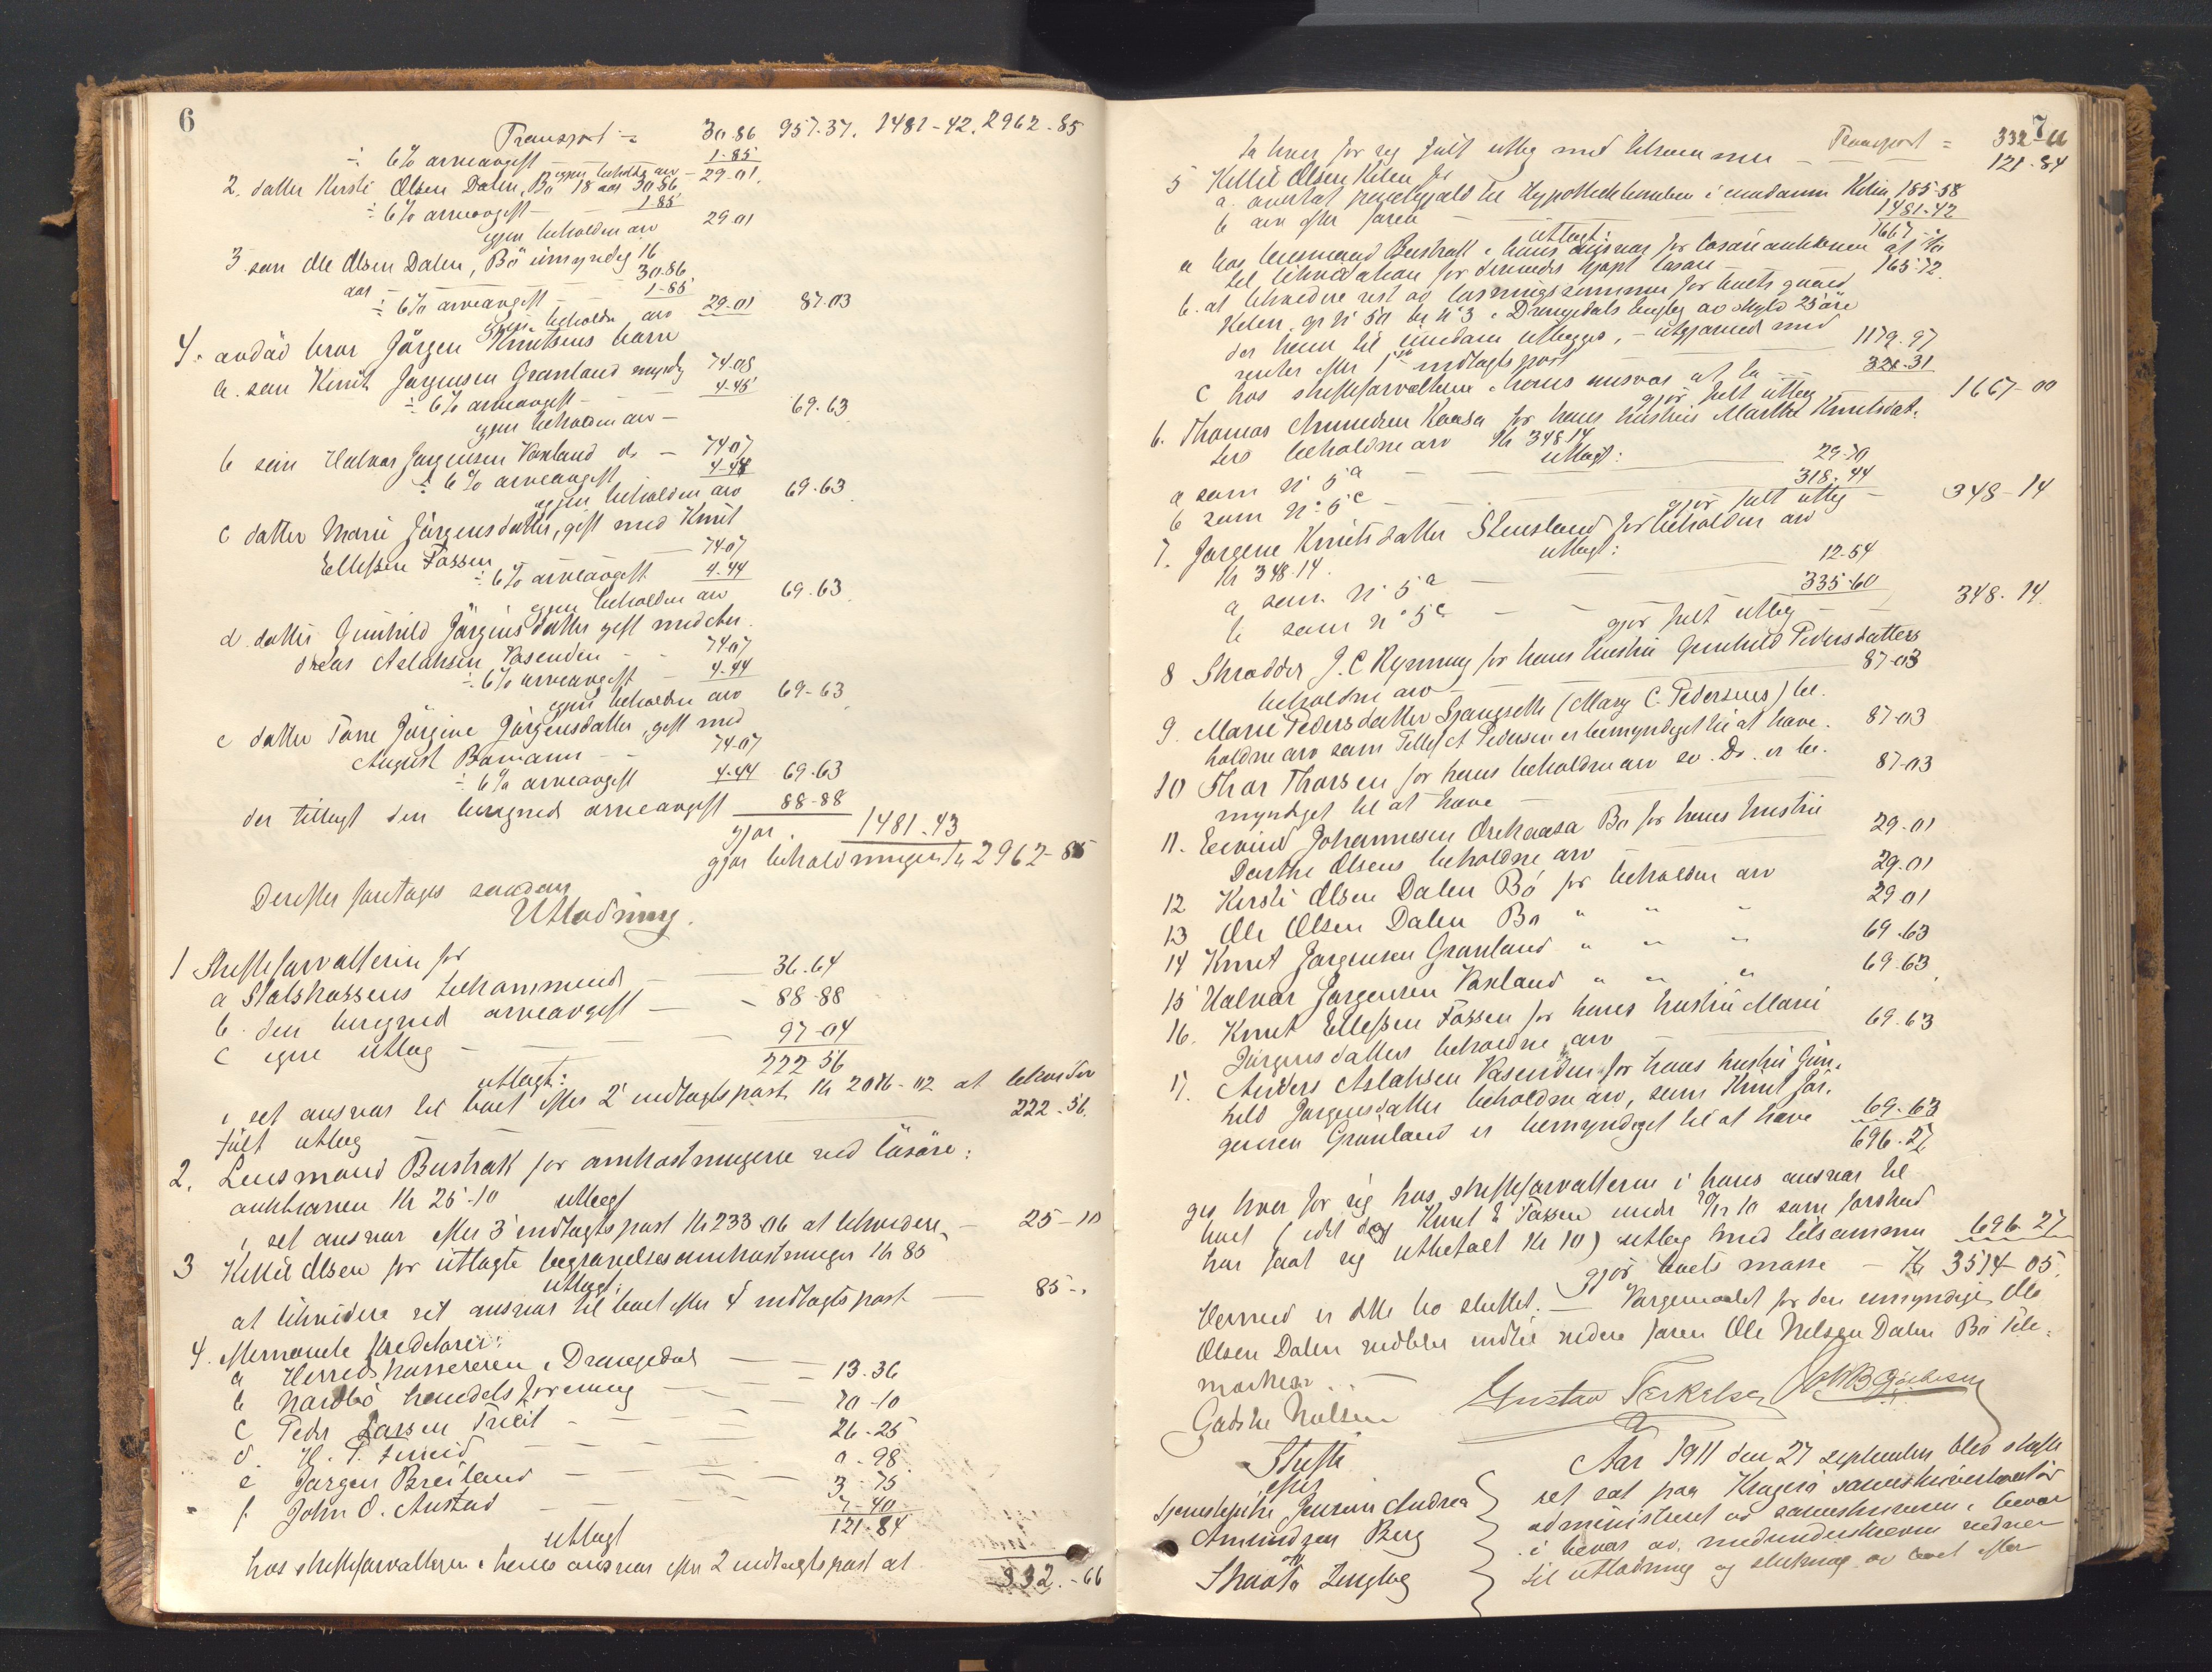 6
Transport = 30.86 957.37. 1481-42. 2962-85
÷ 6% arveavgift 1-85
egen beholdn arv - 29-01.
2. datter Kirsti Olsen Dalen, Bø 18 aar 30.86
÷ 6% arveavgift - 1.85
igjen beholden arv 29-01
3. søn Ole Olsen Dalen, Bö umyndig 16
aar - 30.86
÷ 6% arveavgift 1-85
igjen beholdn arv 29-01 87.03
4. avdød bror Jörgen Knutsens barn
a. søn Knut Jørgensen Grønland myndig 74-08
÷ 6% arveavgift - 4.45
igjen beholden arv - 69.63
b søn Halvor Jørgensen Voxland do - 74.07
÷ 6% arveavgift 4-44
igjen beholden arv 69.63
c datter Marie Jörgensdatter, gift med Knut
Ellefsen Fossen 74-07
÷ 6% arveavgift 4-44
igjen beholden arv 69.63
d. datter Gunhild Jörgensdatter gift med An
dreas Aslaksen Vasenden - 74.07
÷ 6% arveavgift 4-44
igjen beholden arv 69-63
e datter Tone Jörgine Jörgensdatter, gift med
August Bomann - 74.07
÷ 6% arveavgift 4-44 69-63
der tillagt den beregnede arveavgift 88-88
gjør. 1481.43
gjør beholdningen Kr 2962-85
Derefter foretages saadan
Utlodning.
1 Skifteforvalteren for
a Statskassens tilkommende - 36.64
b. den beregned arveavgift - 88-88
c egne utlæg - 97-04
222 56
utlagt:
i sit ansvar til boet efter 2 indtægtspost Kr 2086-02 at likvidere
fuldt utlæg 222-56.
2. Lensmand Bustrak for omkostningerne ved løsøre:
auktionen Kr 25-10 utlagt
i set ansvar efter 3 indtægtspost Kr 233.06 at likvidere - 25-10
3 Kittil Olsen for utlagte begravelsesomkostninger Kr 85
utlagt:
at likvidere sit ansvar til boet efter 4 indtægtspost - 85-.
4. Efternævnte Kreditorer:
a Herredskassereren i Drangedal - 13.36
b Nordbö handelsforening - 70-10
c Peder Larsen Tveit - 26-25
d. H. T. - 0.98
e Jørgen Breiland - 3-75
f. John O. Austad - 7-40
121-84
utlagt
hos skifteforvalteren i hans ansvar efter 2 indtægtspost at
332.-66
7
Transport = 332-66
ta hver for sig fuldt utlæg med tilsammen - 121-84
5 Kittil Olsen Kilen for
a. overtat pantegjæld til Hypothekbanken i eiendommen Kilen 185-58
b arv efter faren 1481-42
1667 -
utlagt:
a hos lensmand Bustrak i hans ansvar for løsøreauktionen at ta
til likvidation for derunder kjøpt løsøre 165-72
b. at likvidere rest av løsningssummen for boets gaard
Kilen gr nr 50 br nr 3 i Drangedals tinglag av skyld 25 øre
der ham til eiendom utlægges, - utgjørende med
renter efter 1ste indtægtspost 1179.97
c hos skifteforvalteren i hans ansvar at ta 321.31
gjør fuldt utlæg 1667-00
6. Thomas Amundsen Kaasa for hans hustrus Marthe Knutsdat.
ters beholdne arv Kr 348.14
utlagt:
a som nr 5a - 29.70
b som nr 5c - 318.44
gjør fuldt utlæg - 348-14
7. Jørgine Knutsdatter Stensland for beholden arv
Kr 348.14. utlagt:
a som nr 5a - 12-54
b som nr 5c - 335.60
gjør fuldt utlæg - 348.14.
8 Skrædder J. C Rynning for hans hustru Gunhild Pedersdatters
beholdne arv - 87-03
9. Marie Pedersdatter (Mary C. Pedersens) be.
holdne arv som Tellef A Pedersen er bemyndiget til at hæve. 87-03
10 Thor Thorsen for hans beholdne arv so. Do. er be.
myndiget til at hæve - 87-03
11. Eivind Johannesen Orekaasa Bø for hans hustru
Dorthe Olsens beholdne arv 29-01
12 Kirsti Olsen Dalen Bö for beholden arv 29.01
13 Ole Olsen Dalen Bø " " " 29 01
14 Knut Jørgensen Grønland " " " 69.63
15 Halvor Jørgensen Voxland " " " 69.63
16. Knut Ellefsen Fossen for hans hustru Marie
Jörgensdatters beholdne arv - 69.63
17. Anders Aslaksen Vasenden for hans hustru Gun.
hild Jørgensdatters beholdne arv, som Knut Jør.
gensen Grønland er bemyndiget til at hæve 69-63
696.27
gis hver for sig hos skifteforvalteren i hans ansvar til
boet (idet dog Knut E Fossen under 10 som forskud
har faat sig utbetalt Kr 10) utlæg med tilsammen 696.27
gjør boets masse - Kr 3514-05.
Hermed er dette bo sluttet. - Vergemaalet for den umyndige Ole
Olsen Dalen vedblir indtil videre faren Ole Nilsen Dalen Bö Tele-
marken. -
Gustav Terkelsen
Skifte
efter
tjenestepike Andrea
Amundsen Berg
Skaatø tinglag
Aar 1911 den 27 september blev skifte
ret sat paa Kragerø sorenskriverkontor
administreret av sorenskriveren i
i nærvær av medunderskrevne vidner
til utlodning og slutning av boet efter